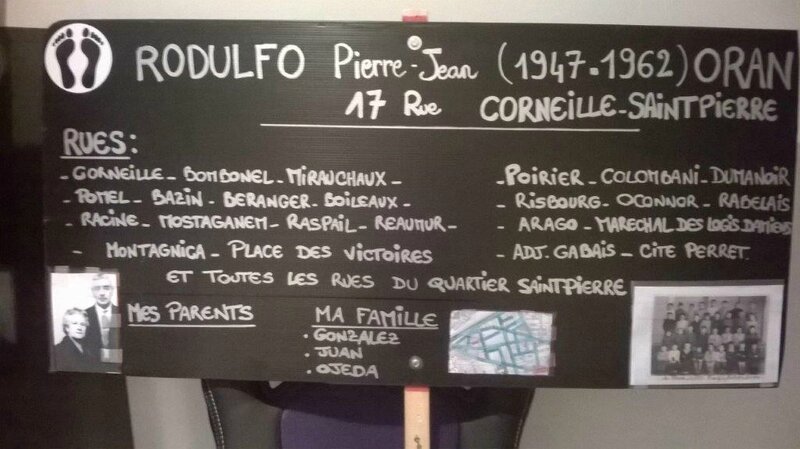 RODULFO Pierre-Jean (1947-1962) ORAN
17 Rue CORNEILLE-SAINTPIERRE
RUES:
- CORNEILLE - BOMBONEL - MIRAUCHAUX -
- POMEL - BAZIN - BERANGER - BOILEAUX -
- RACINE - MOSTAGANEM - RASPAIL - REAUMUR -
- MONTAGNICA - PLACE DES VICTOIRES
- POIRIER - COLOMBANI - DUMANOIR
- RISBOURG - OCONNOR - RABELAIS
- ARAGO - MARECHAL DES LOGIS DAMIENS
- ADJ. GABAIS - CITE PERRET.
ET TOUTES LES RUES DU QUARTIER SAINTPIERRE
MES PARENTS
MA FAMILLE
. GONZALEZ
. JUAN
. OJEDA